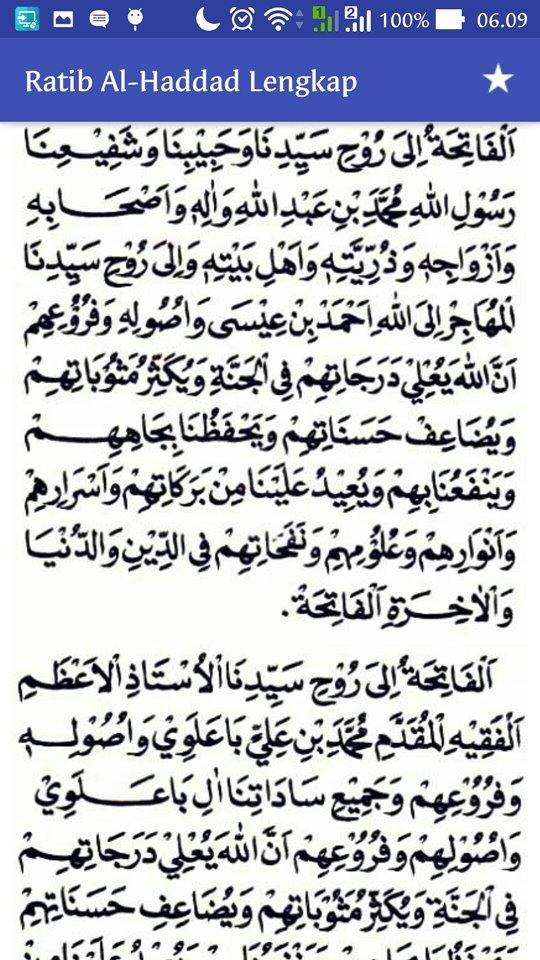 100% 06.09
Ratib Al-Haddad Lengkap
اَلْفَاتِحَةُ اِلَى رُوْحِ سَيِّدِنَا وَحَبِيْبِنَا وَشَفِيْعِنَا
رَسُوْلِ اللهِ مُحَمَّدِ بْنِ عَبْدِ اللهِ وَاٰلِهِ وَاَصْحَابِهِ
وَاَزْوَاجِهِ وَذُرِّيَّتِهِ وَاَهْلِ بَيْتِهِ وَاِلَى رُوْحِ سَيِّدِنَا
الْمُهَاجِرْ اِلَى اللهِ اَحْمَدْ بِنْ عِيْسَى وَاُصُوْلِهِ وَفُرُوْعِهِمْ
اَنَّ اللهَ يُعْلِيْ دَرَجَاتِهِمْ فِى الْجَنَّةِ وَيُكَثِّرُ مَثُوْبَاتِهِمْ
وَيُضَاعِفْ حَسَنَاتِهِمْ وَيَحْفَظُنَا بِجَاهِهِمْ
وَيَنْفَعُنَابِهِمْ وَيُعِيْدُ عَلَيْنَا مِنْ بَرَكَاتِهِمْ وَاَسْرَارِهِمْ
وَاَنْوَارِهِمْ وَعُلُوْمِهِمْ وَنَفَحَاتِهِمْ فِى الدِّيْنِ وَالدُّنْيَا
وَالْاٰخِرَةِ اَلْفَاتِحَةْ.
اَلْفَاتِحَةُ اِلَى رُوْحِ سَيِّدِنَا الْاُسْتَاذِ الْاَعْظَمِ
اَلْفَقِيْهِ الْمُقَدَّمِ مُحَمَّدِ بْنِ عَلِيِّ بَاعَلَوِيْ وَاُصُوْلِهِ
وَفُرُوْعِهِمْ وَجَمِيْعِ سَادَاتِنَا اٰلِ بَاعَلَوِيْ
وَاُصُوْلِهِمْ وَفُرُوْعِهِمْ اَنَّ اللهَ يُعْلِيْ دَرَجَاتِهِمْ
فِى الْجَنَّةِ وَيُكَثِّرُ مَثُوْبَاتِهِمْ وَيُضَاعِفِ حَسَنَاتِهِمْ